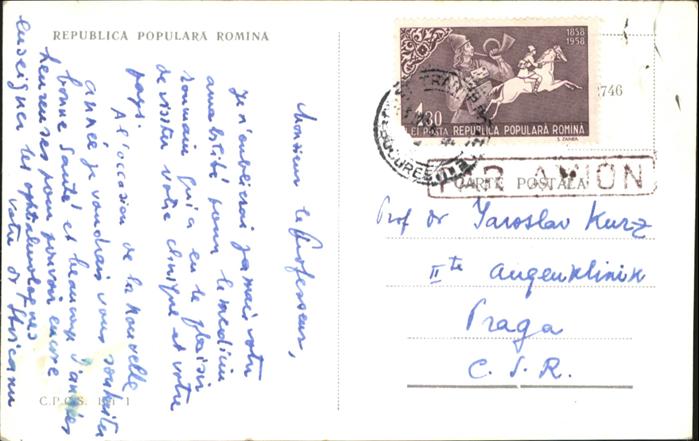 REPUBLICA POPULARĂ ROMÎNĂ
Monsieur le Professeur,
je n'oublierai jamais votre
amabilité pour le medicin
roumain qui a eu le plaisir
de visiter votre clinique et votre
pays.
A l'occasion de la nouvelle
année je voudrais vous souhaiter
bonne santé et beaucoup d'années
heureuses pour pouvoir encore
enseigner les ophtalmologues
votre dr Stoicanu
C.P.C.S.
1858
1958
4,30
LEI POSTA REPUBLICA POPULARĂ ROMÎNĂ
S. ZAINEA
2746
BUCURESTI
PAR AVION
CARTE POSTALĂ
Prof Dr Yaroslav Kurz
IIte Augenklinik
Praga
C. S. R.